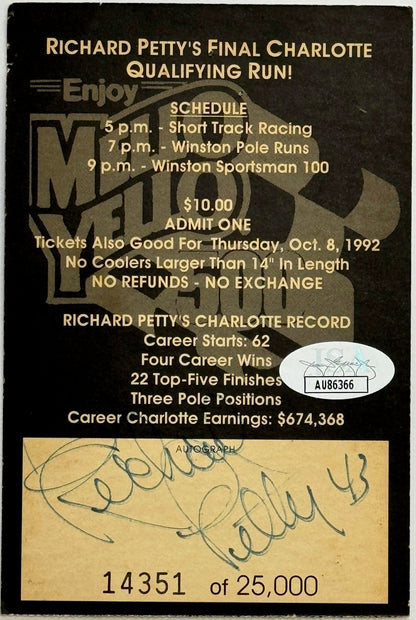 RICHARD PETTY'S FINAL CHARLOTTE
QUALIFYING RUN!
Enjoy
MELLO
YELLO
500
SCHEDULE
5 p.m. - Short Track Racing
7 p.m. - Winston Pole Runs
9 p.m. - Winston Sportsman 100
$10.00
ADMIT ONE
Tickets Also Good For Thursday, Oct. 8, 1992
No Coolers Larger Than 14" In Length
NO REFUNDS - NO EXCHANGE
RICHARD PETTY'S CHARLOTTE RECORD
Career Starts: 62
Four Career Wins
22 Top-Five Finishes
Three Pole Positions
Career Charlotte Earnings: $674,368
JSA
AU86366
AUTOGRAPH
Richard
Petty 43
14351 of 25,000